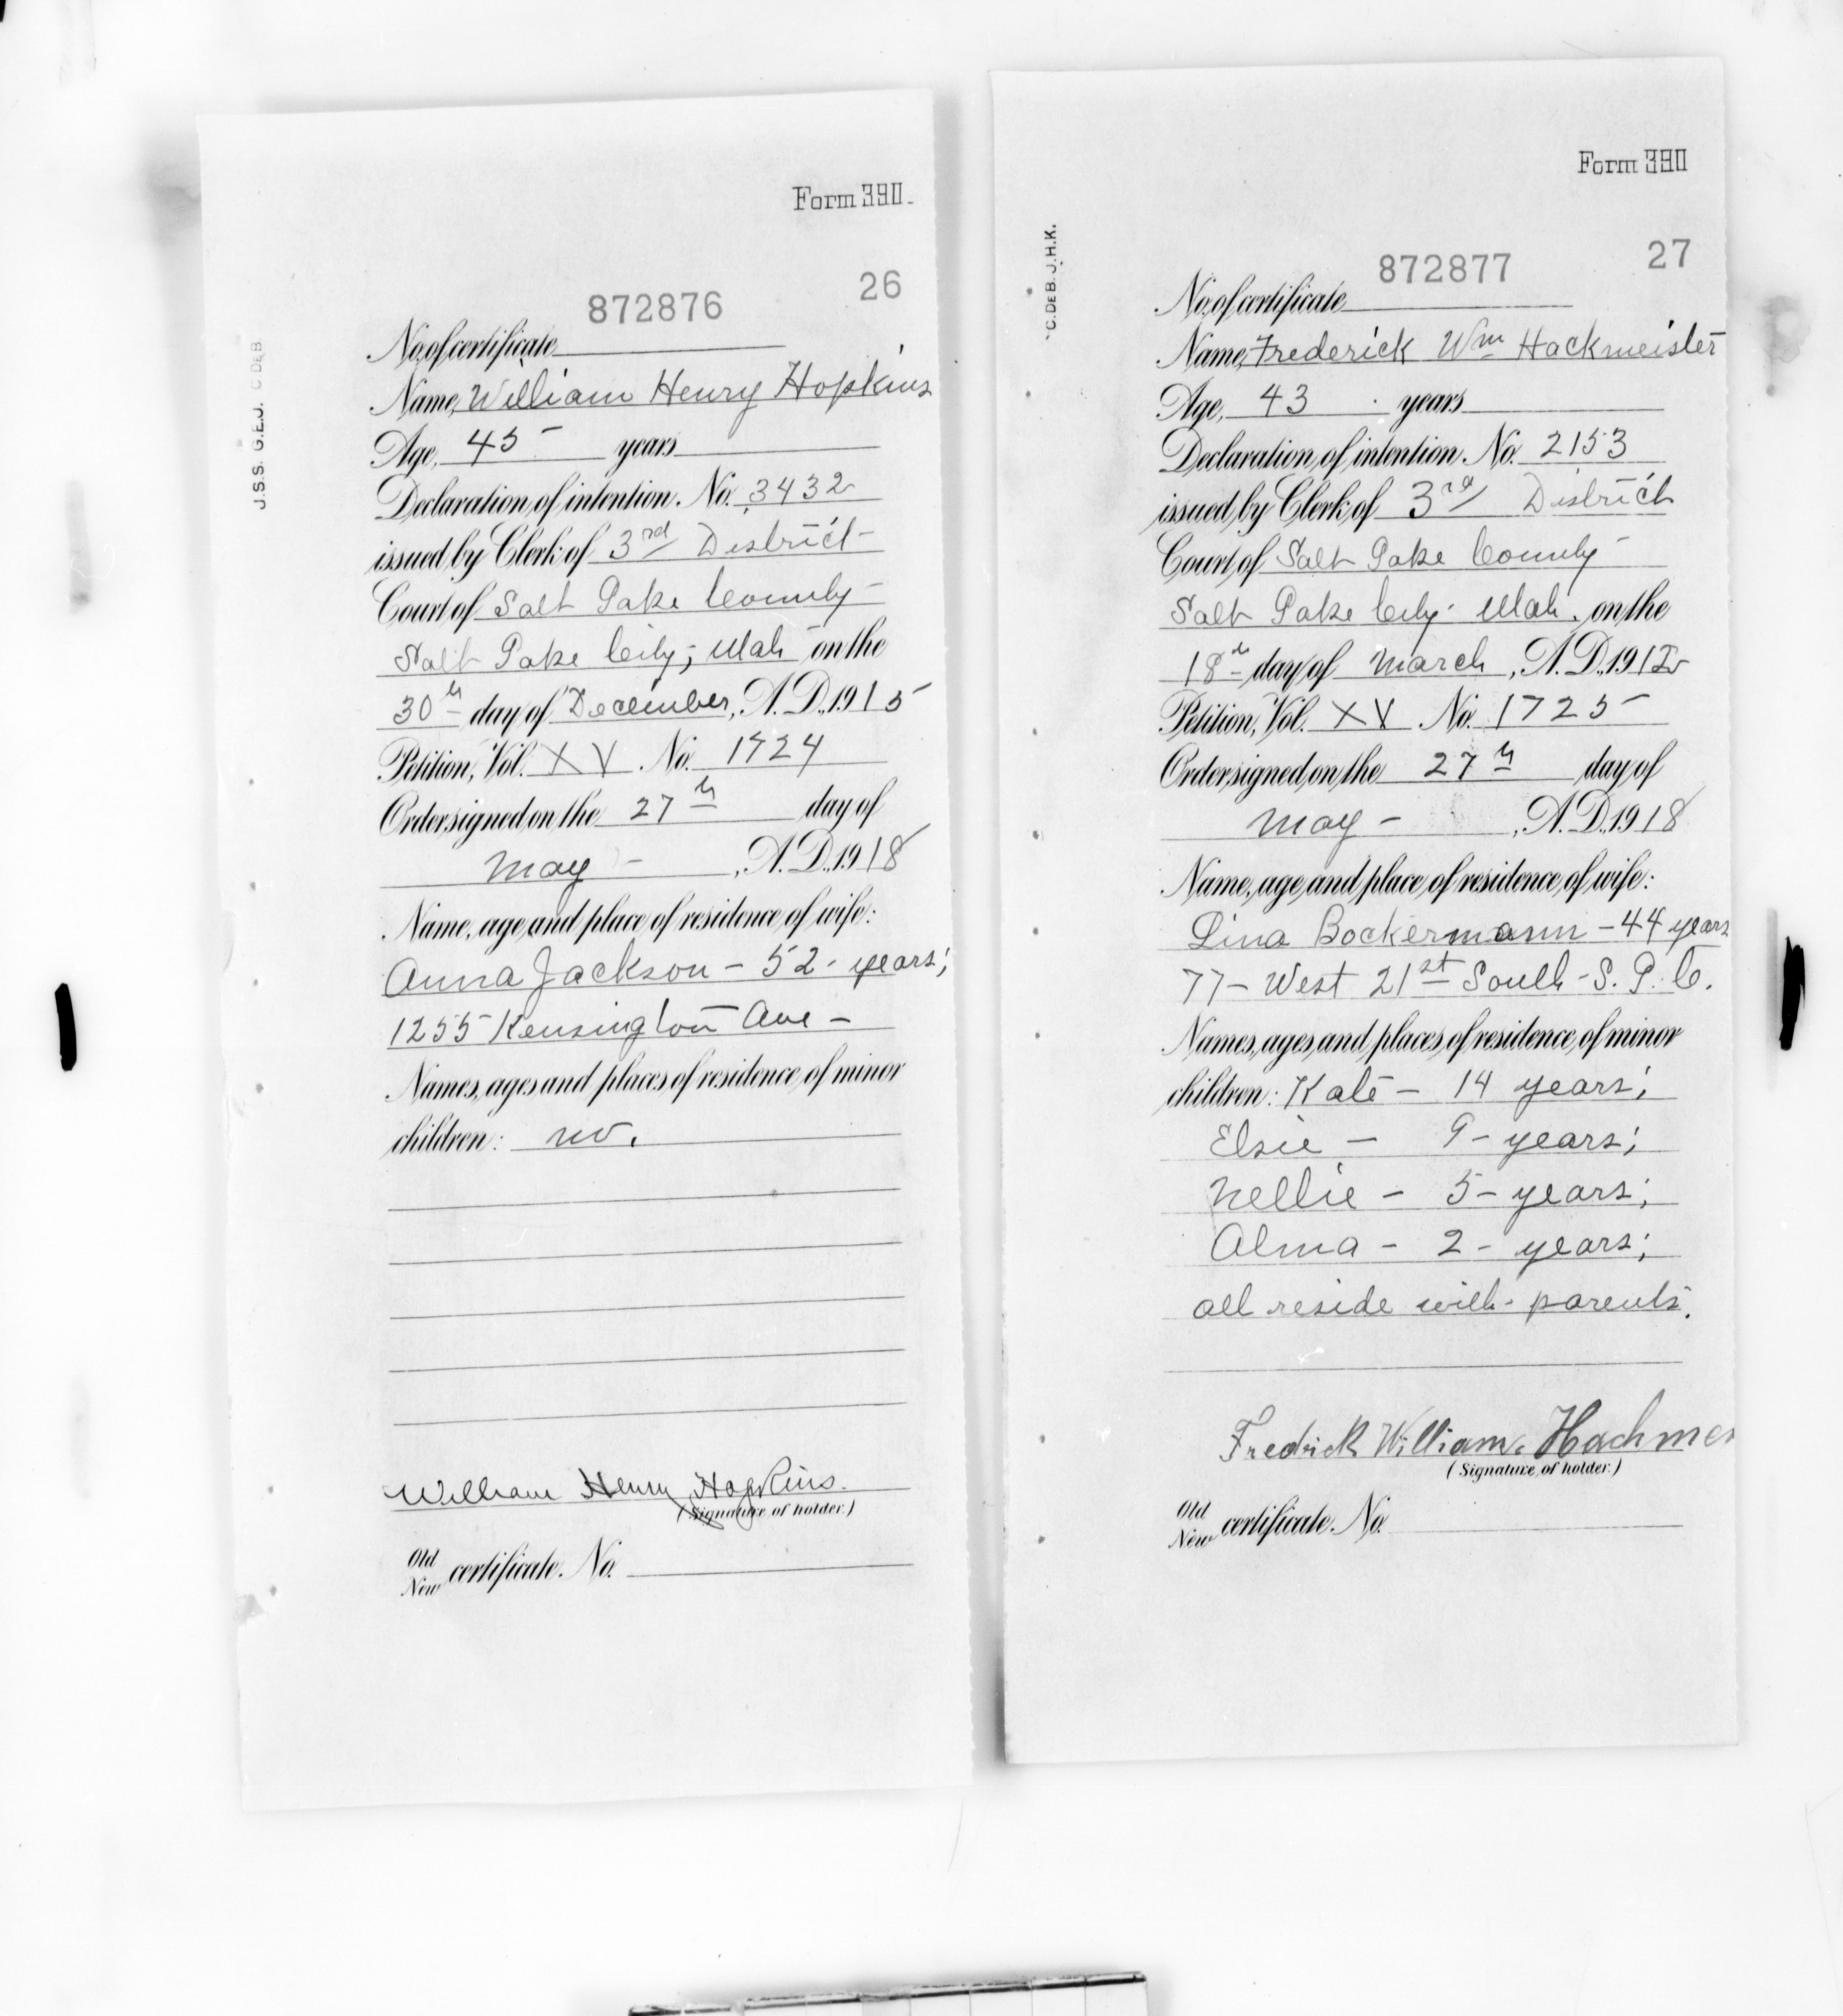 Form 390.
26
872876
J.S.S. G.E.J. C.DEB.
No. of certificate
Name, William Henry Hopkins
Age, 45 - years
Declaration of intention. No. 3432
issued by Clerk of 3rd District -
Court of Salt Lake County -
Salt Lake City; Utah - on the
30th day of December, A.D. 1915 -
Petition, Vol. XV. No. 1724
Order signed on the 27th day of
May - , A.D. 1918
Name, age and place of residence of wife:
Anna Jackson - 52 - years;
1255 Kensington Ave -
Names, ages and places of residence of minor
children: no.
William Henry Hopkins.
(Signature of holder.)
Old
New certificate. No.
Form 390
27
872877
C.DEB. J.H.K.
No. of certificate
Name, Frederick Wm Hackmeister
Age, 43 years
Declaration of intention. No. 2153
issued by Clerk of 3rd District
Court of Salt Lake County -
Salt Lake City - Utah. on the
18th day of March, A.D. 1912
Petition, Vol. XV No. 1725 -
Order signed on the 27th day of
May - , A.D. 1918
Name, age and place of residence of wife:
Lina Bockermann - 44 years
77 - West 21st South - S. L. C.
Names, ages and places of residence of minor
children: Kate - 14 years;
Elsie - 9 - years;
Nellie - 5 - years;
Alma - 2 - years;
all reside with - parents.
Fredrick William Hachmei
(Signature of holder.)
Old
New certificate. No.